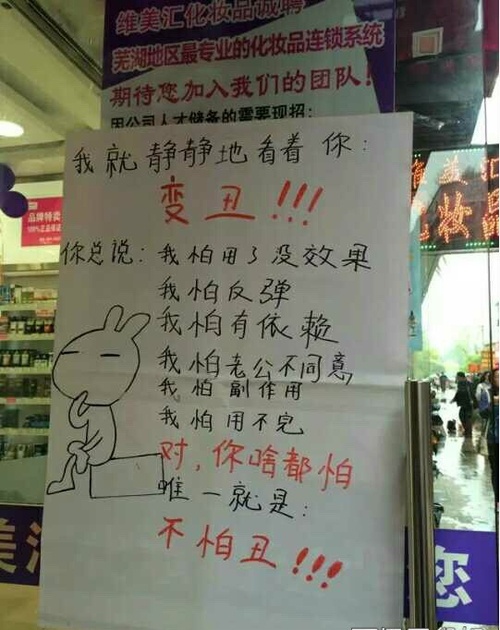 维美汇化妆品诚聘
芜湖地区最专业的化妆品连锁系统
期待您加入我们的团队!
因公司人才储备的需要现招:
我就静静地看着你:
变丑!!!
你总说:我怕用了没效果
我怕反弹
我怕有依赖
我怕老公不同意
我怕副作用
我怕用不完
对,你啥都怕
唯一就是:
不怕丑!!!
品牌特卖
维美汇
化妆品
美汇
您